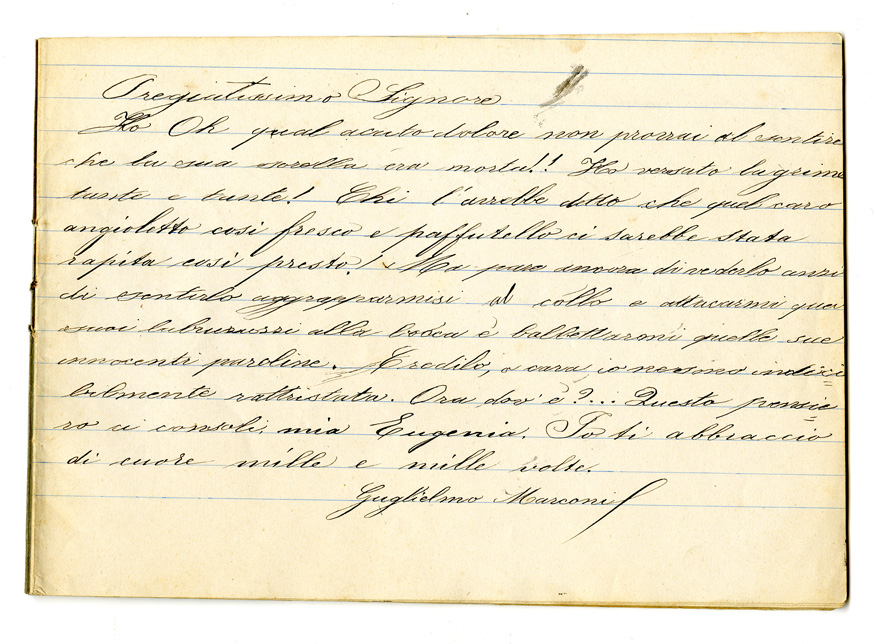 Pregiatissimo Signore
Ho Oh qual acuto dolore non provai al sentire
che la sua sorella era morta!! Ho versato lagrim
tante e tante! Chi l'avrebbe ditto che quel caro
angioletto così fresco e paffutello ci sarebbe stata
rapita così presto! Ma pare ancora di vederlo anzi
di sentirlo aggrapparmisi al collo e attacarmi que
suoi alla bocca e balbettarmi quelle sue
innocenti paroline. Credilo, o cara io ne sono indici
bilmente rattristata. Ora dov'è?... Questo pensie
ro ci consoli, mia Eugenia. Io ti abbraccio
di cuore mille e mille volte.
Guglielmo Marconi